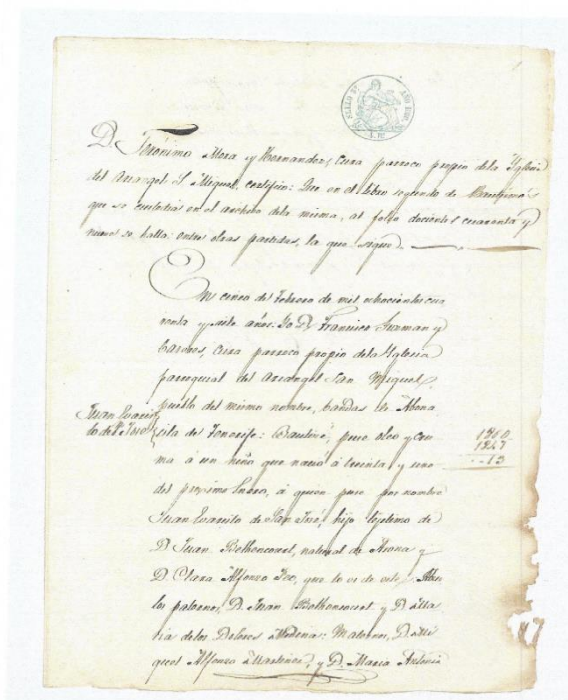 SELLO 9º AÑO 1860
D. Jerónimo Mora y Hernandez, Cura parroco propio de la Yglesia
del Arcangel S. Miguel, certifico: Que en el libro segundo de Bautismos
que se custodia en el archivo de la misma, al folio docientos cuarenta y
nueve se halla entre otras partidas, la que sigue
En cinco de Febrero de mil ochocientos cua
renta y siete años. Yo D. Francisco Guzman y
Caceres, Cura parroco propio de la Yglesia
parroquial del Arcangel San Miguel,
pueblo del mismo nombre, bandas de Abona
Juan Evaristo
de Sn. José
isla de Tenerife: Bautisé, puse oleo y cris
ma á un niño que nació á treinta y uno
del proximo Enero, á quien puse por nombre
Juan Evaristo de San José, hijo lejitimo de
D. Juan Bethencourt, natural de Arona y
D. Clara Alfonzo, que lo es de este. Abue
los paternos, D. Juan Bethencourt y D. Ma
ria de los Dolores Medina: Maternos, D. Mi
guel Alfonzo Martinez, y D. Maria Antonia
1860
1847
13